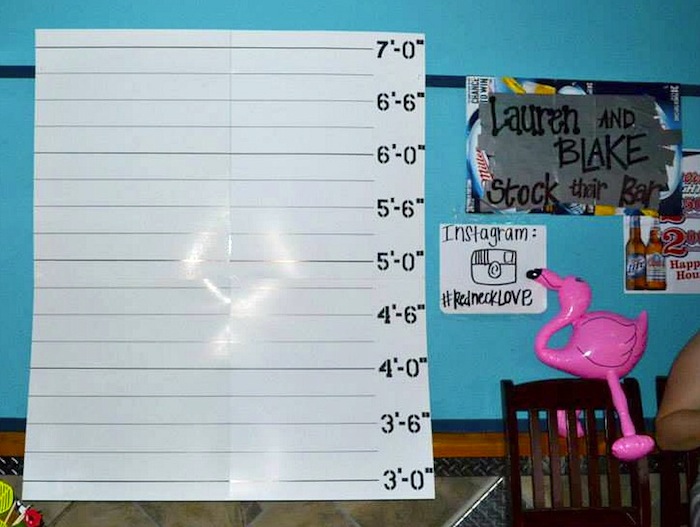 7'-0"
6'-6"
6'-0"
5'-6"
5'-0"
4'-6"
4'-0"
3'-6"
3'-0"
CHANCE
TO WIN
Lauren AND
BLAKE
Stock their Bar
Instagram:
#RedneckLOVE
Lite
2
Happ
Hou